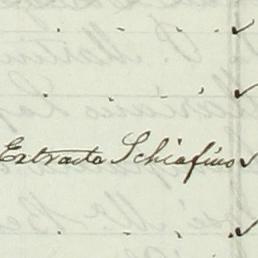 Extracto Schiafino